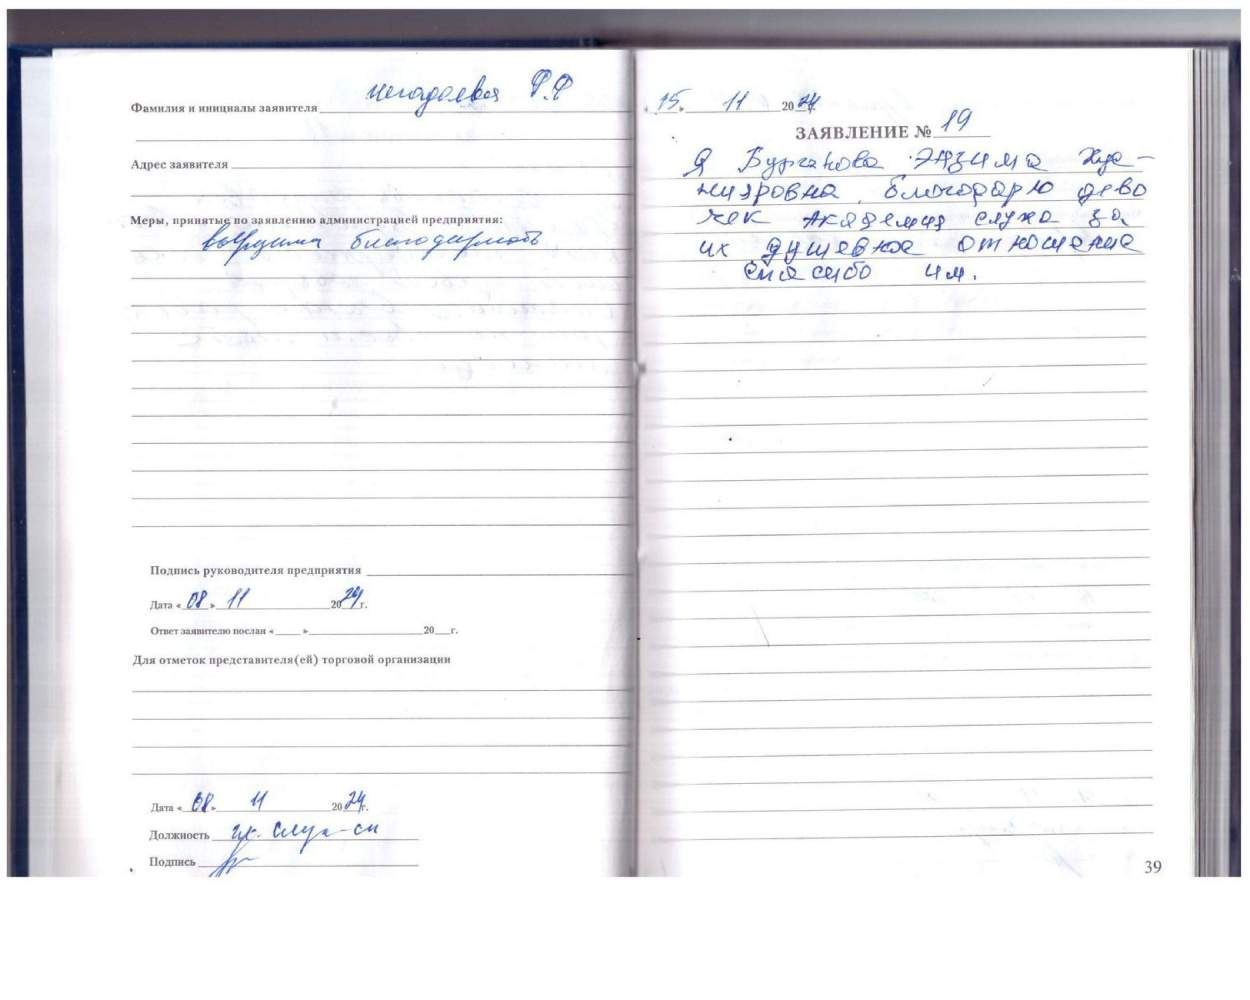 Фамилия и инициалы заявителя Ф.Ф
Адрес заявителя
Меры, принятые по заявлению администрацией предприятия:
благодарность
Подпись руководителя предприятия
Дата « 08 » 11 2024 г.
Ответ заявителю послан « » 20 г.
Для отметок представителя(ей) торговой организации
Дата « 08 » 11 2024 г.
Должность
Подпись
« 15 » 11 2024
ЗАЯВЛЕНИЕ № 19
Я Бурганова
благодарю дево
чек Академия слуха за
их душевное отношение
спасибо им.
39